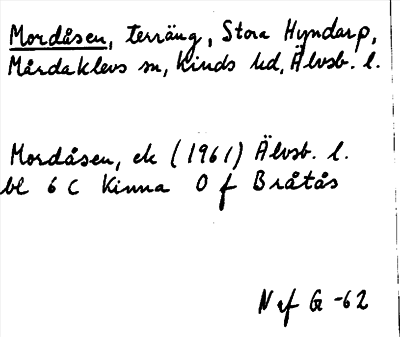 Mordåsen, terräng, Stora Hyndarp,
Mårdaklevs sn, Kinds hd, Älvsb. l.
Mordåsen, ek (1961) Älvsb. l.
bl 6 C Kinna O f Bråtås
N ef G -62